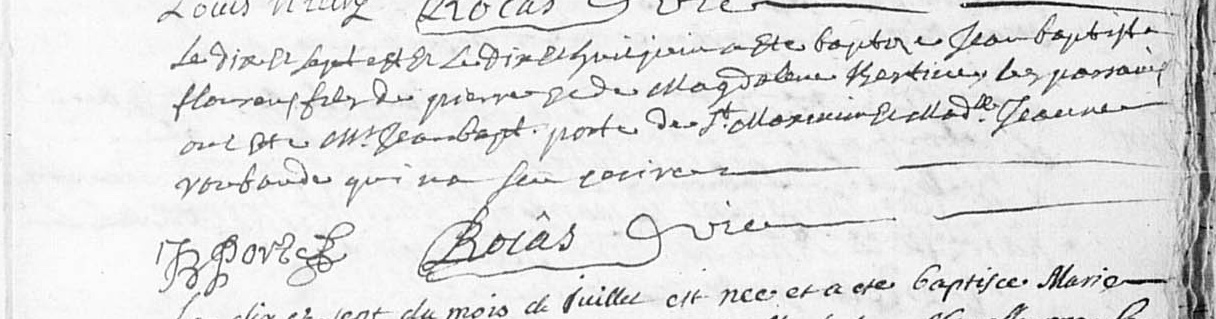 Louis
Rocas Vic
Le dix et sept est et Le dix et huit jein a Ete baptize Jean baptiste
flourens fils de pierre et de Magdalene les parrains
ont Ete Mr Jean bapt. porte de St Maximin Et Madlle Jeanne
roubaude qui na sceu escrire
JB Porte Rocas Vic
Le dix et sept du mois de Juillet est nee et a ete baptisee Marie